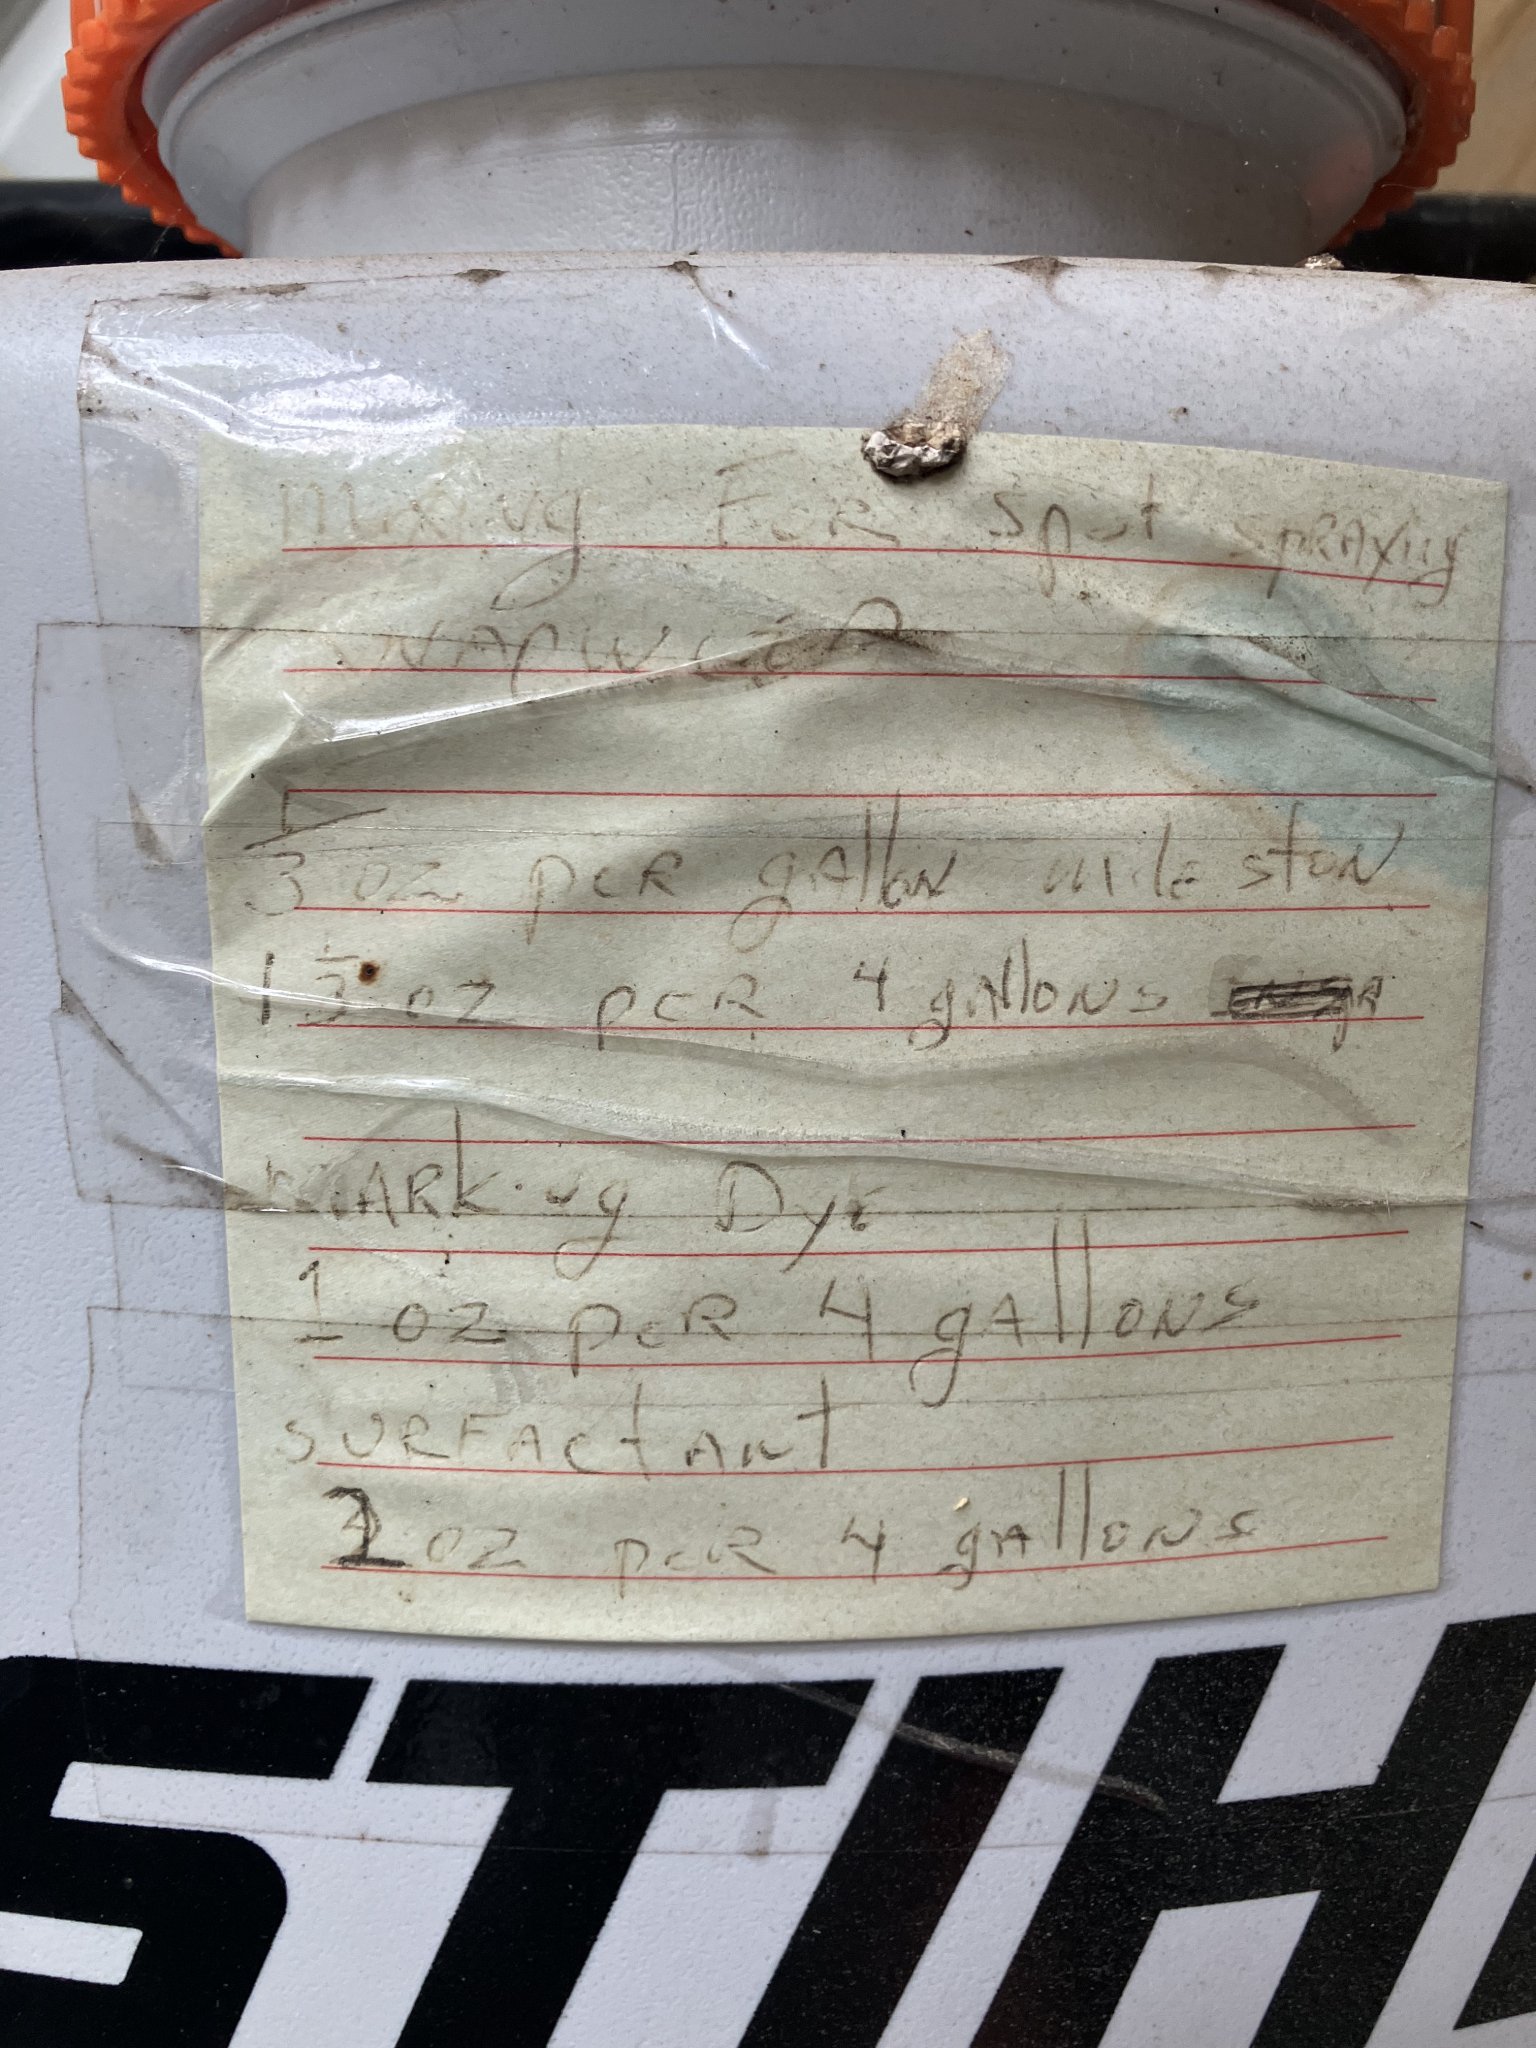 mixing FOR spot spRAYing
KNAPWEED
1/3 oz peR gAllon mileston
1 1/3 oz peR 4 gAllONs
mARking Dye
1 oz peR 4 gAllONs
suRFActANt
2 oz peR 4 gAllONs
STIH